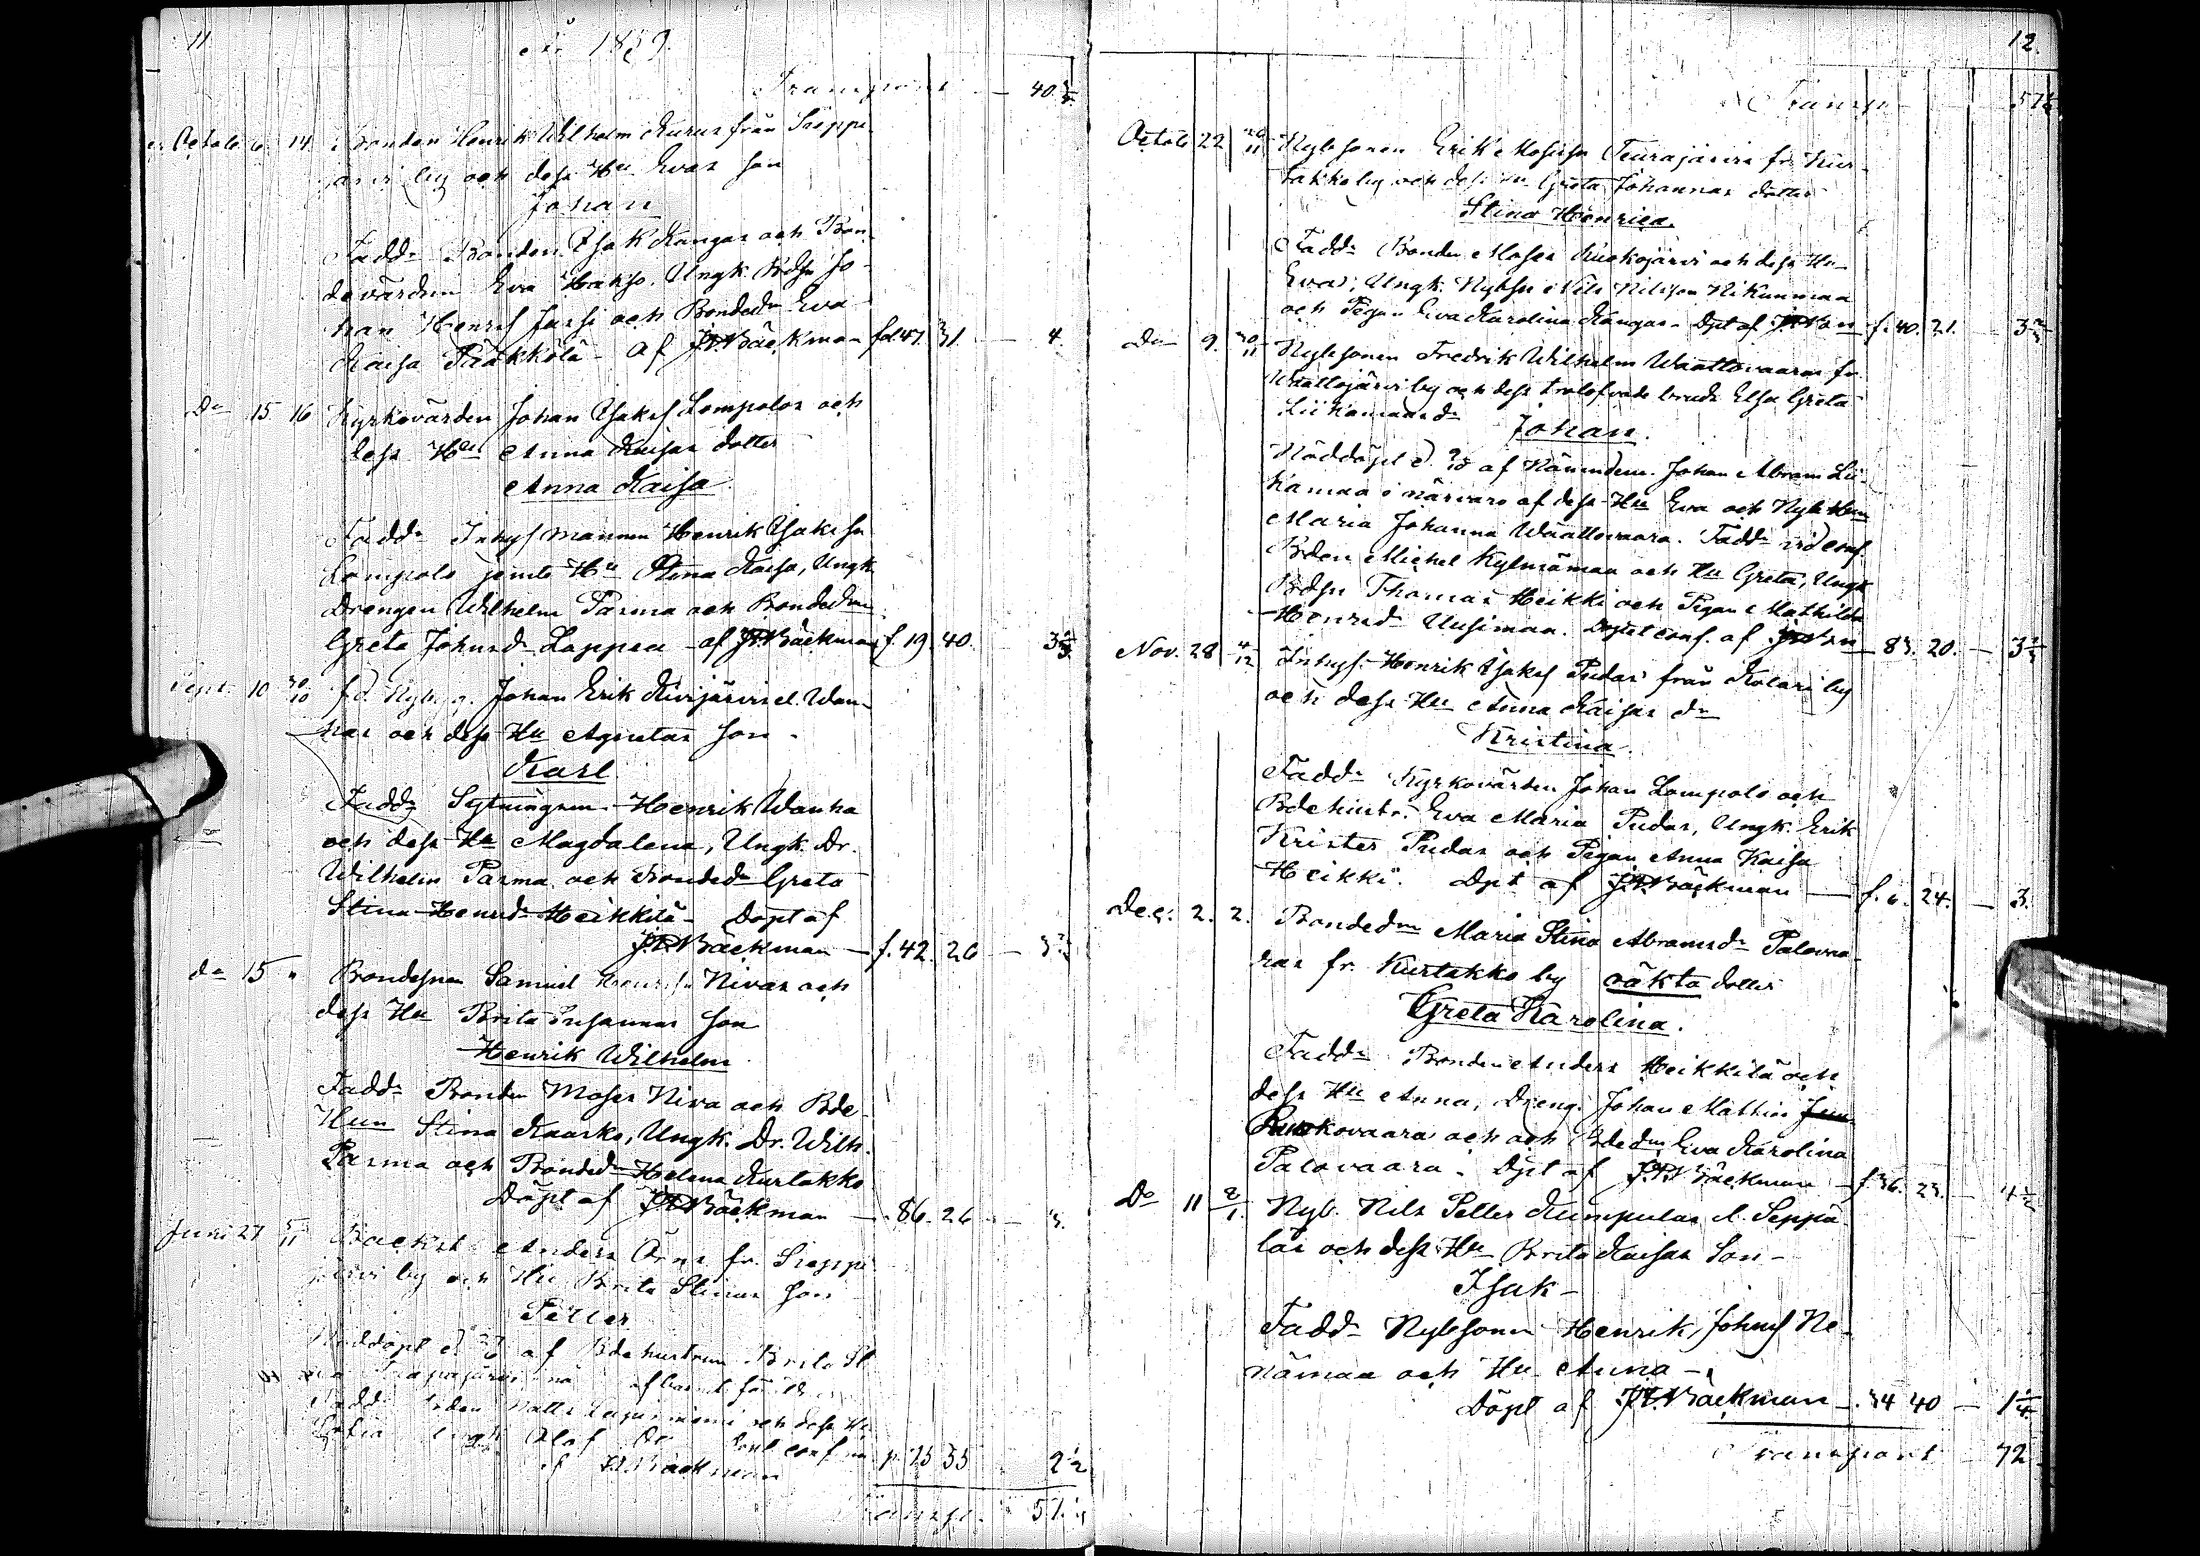 11
År 1859.
Transport — 40 ¾
Octob. 6. 14. Bonden Henrik Wilhelm Kurus från Sieppi
järvi by och dess Hu Evas son
Johan
Fadd. Bonden Isak Kangas och Bon
devärden Eva Hakso, Ungk. Bdsn Jo-
han Henrss Jussi och Bondedn Eva
Kaisa Pääkkölä - af J.P. Bäckman fol. 47. 31. — 4.
Do 15 16 Kyrkovärden Johan Isakss Lompolos och
dess Hu Anna Kaisas dotter
Anna Kaisa
Fadd. Inhysmannen Henrik Isaksson
Lompolo jemte Hu Stina Kaisa, Ungk.
Drengen Wilhelm Parma och Bondedn
Greta Johnsd. Lappea - af J.P. Bäckman f. 19. 40. — 3
Sept. 10 30/10 fd. Nyb. Johan Erik Kivijärvi el. Wan-
has och dess Hu Agnetas son -
Karl
Fadd. Sytningsm. Henrik Wanha
och dess Hu Magdalena, Ungk. Dr.
Wilhelm Parma och Bondedn Greta
Stina Henrsd. Heikkilä - Döpt af
J.P. Bäckman — f. 42. 26 — 3
do 15 " Bondesonen Samuel Henrss Nivas och
dess Hu Brita Susannas son
Henrik Wilhelm
Fadd. Bonden Moses Niva och Bde-
Hun Stina Kaarko, Ungk. Dr. Wilh.
Parma och Bondedn Helena Kurtakko
Döpt af J.P. Bäckman — 86. 26. — 3.
Juni 27 5/11 Anders Örns fr. Sieppi
järvi by och Hu Brita Stinas son
Petter
Nöddöpt af Bdehustrun Brita St.
Fadd.
Sofia Ungk. Olof conf.
af J.P. Bäckman p. 25 35 2 ½
Transp. 57 ¼
12.
Transp. 57 ¼
Octob 22 20/11 Nybsonen Erik Mosesson Teurajärvis fr. Kur-
takko by och dess Hu Greta Johannas dotter
Stina Henrica.
Fadd. Bonden Moses Kuckojärvi och dess Hu
Eva; Ungk. Nybsn Nils Nilsson Nikunmaa
och Pigan Eva Karolina Kangas - Dpt af J.P. Bn f. 40. 21. — 3
Do 9. 30/11 Nybsonen Fredrik Wilhelm Waattovaaras fr.
Waattojärvi by och dess trolofvade brud Elsa Greta
Liikamaas dn Johan.
Nöddöpt d. af Nämndem. Johan Abram Lii-
kamaa i närvaro af dess Hu Eva och Nyb Hun
Maria Johanna Waattovaara. Fadd. vid conf.
Bden Michel Kylmämaa och Hu Greta; Ungk.
Bdsn Thomas Heikki och Pigan Mathilda
Henrsd. Uusimaa. Döpt conf. af J.P. Bn — 83. 20. — 3
Nov. 28 4/12 Inhys. Henrik Isakss Pudas från Kolari by
och dess Hu Anna Kaisas dn
Kristina.
Fadd. Kyrkovärden Johan Lompolo och
Bdehustr. Eva Maria Pudas, Ungk. Erik
Krister Pudas och Pigan Anna Kaisa
Heikki. Dpt af J.P. Bäckman — f. 6. 24. — 3.
Dec. 2. 2. Bondedn Maria Stina Abramsd. Palovaa-
ras fr. Kurtakko by oäkta dotter
Greta Karolina.
Fadd. Bonden Anders Heikkilä och
dess Hu Anna, Dreng. Johan Mathias
Ruokovaara och och Bdedn Eva Karolina
Palovaara. Dpt af J.P. Bäckman — f. 36. 23. — 4 ½
Do 11 8/1 Nyb. Nils Petter Kumpulas el. Seppä-
läs och dess Hu Brita Kaisas Son -
Isak -
Fadd. Nybsonen Henrik Johnss Ne-
nämaa och Hu Anna -
Döpt af J.P. Bäckman — 34 40 — 1 ¼
Transport — 72